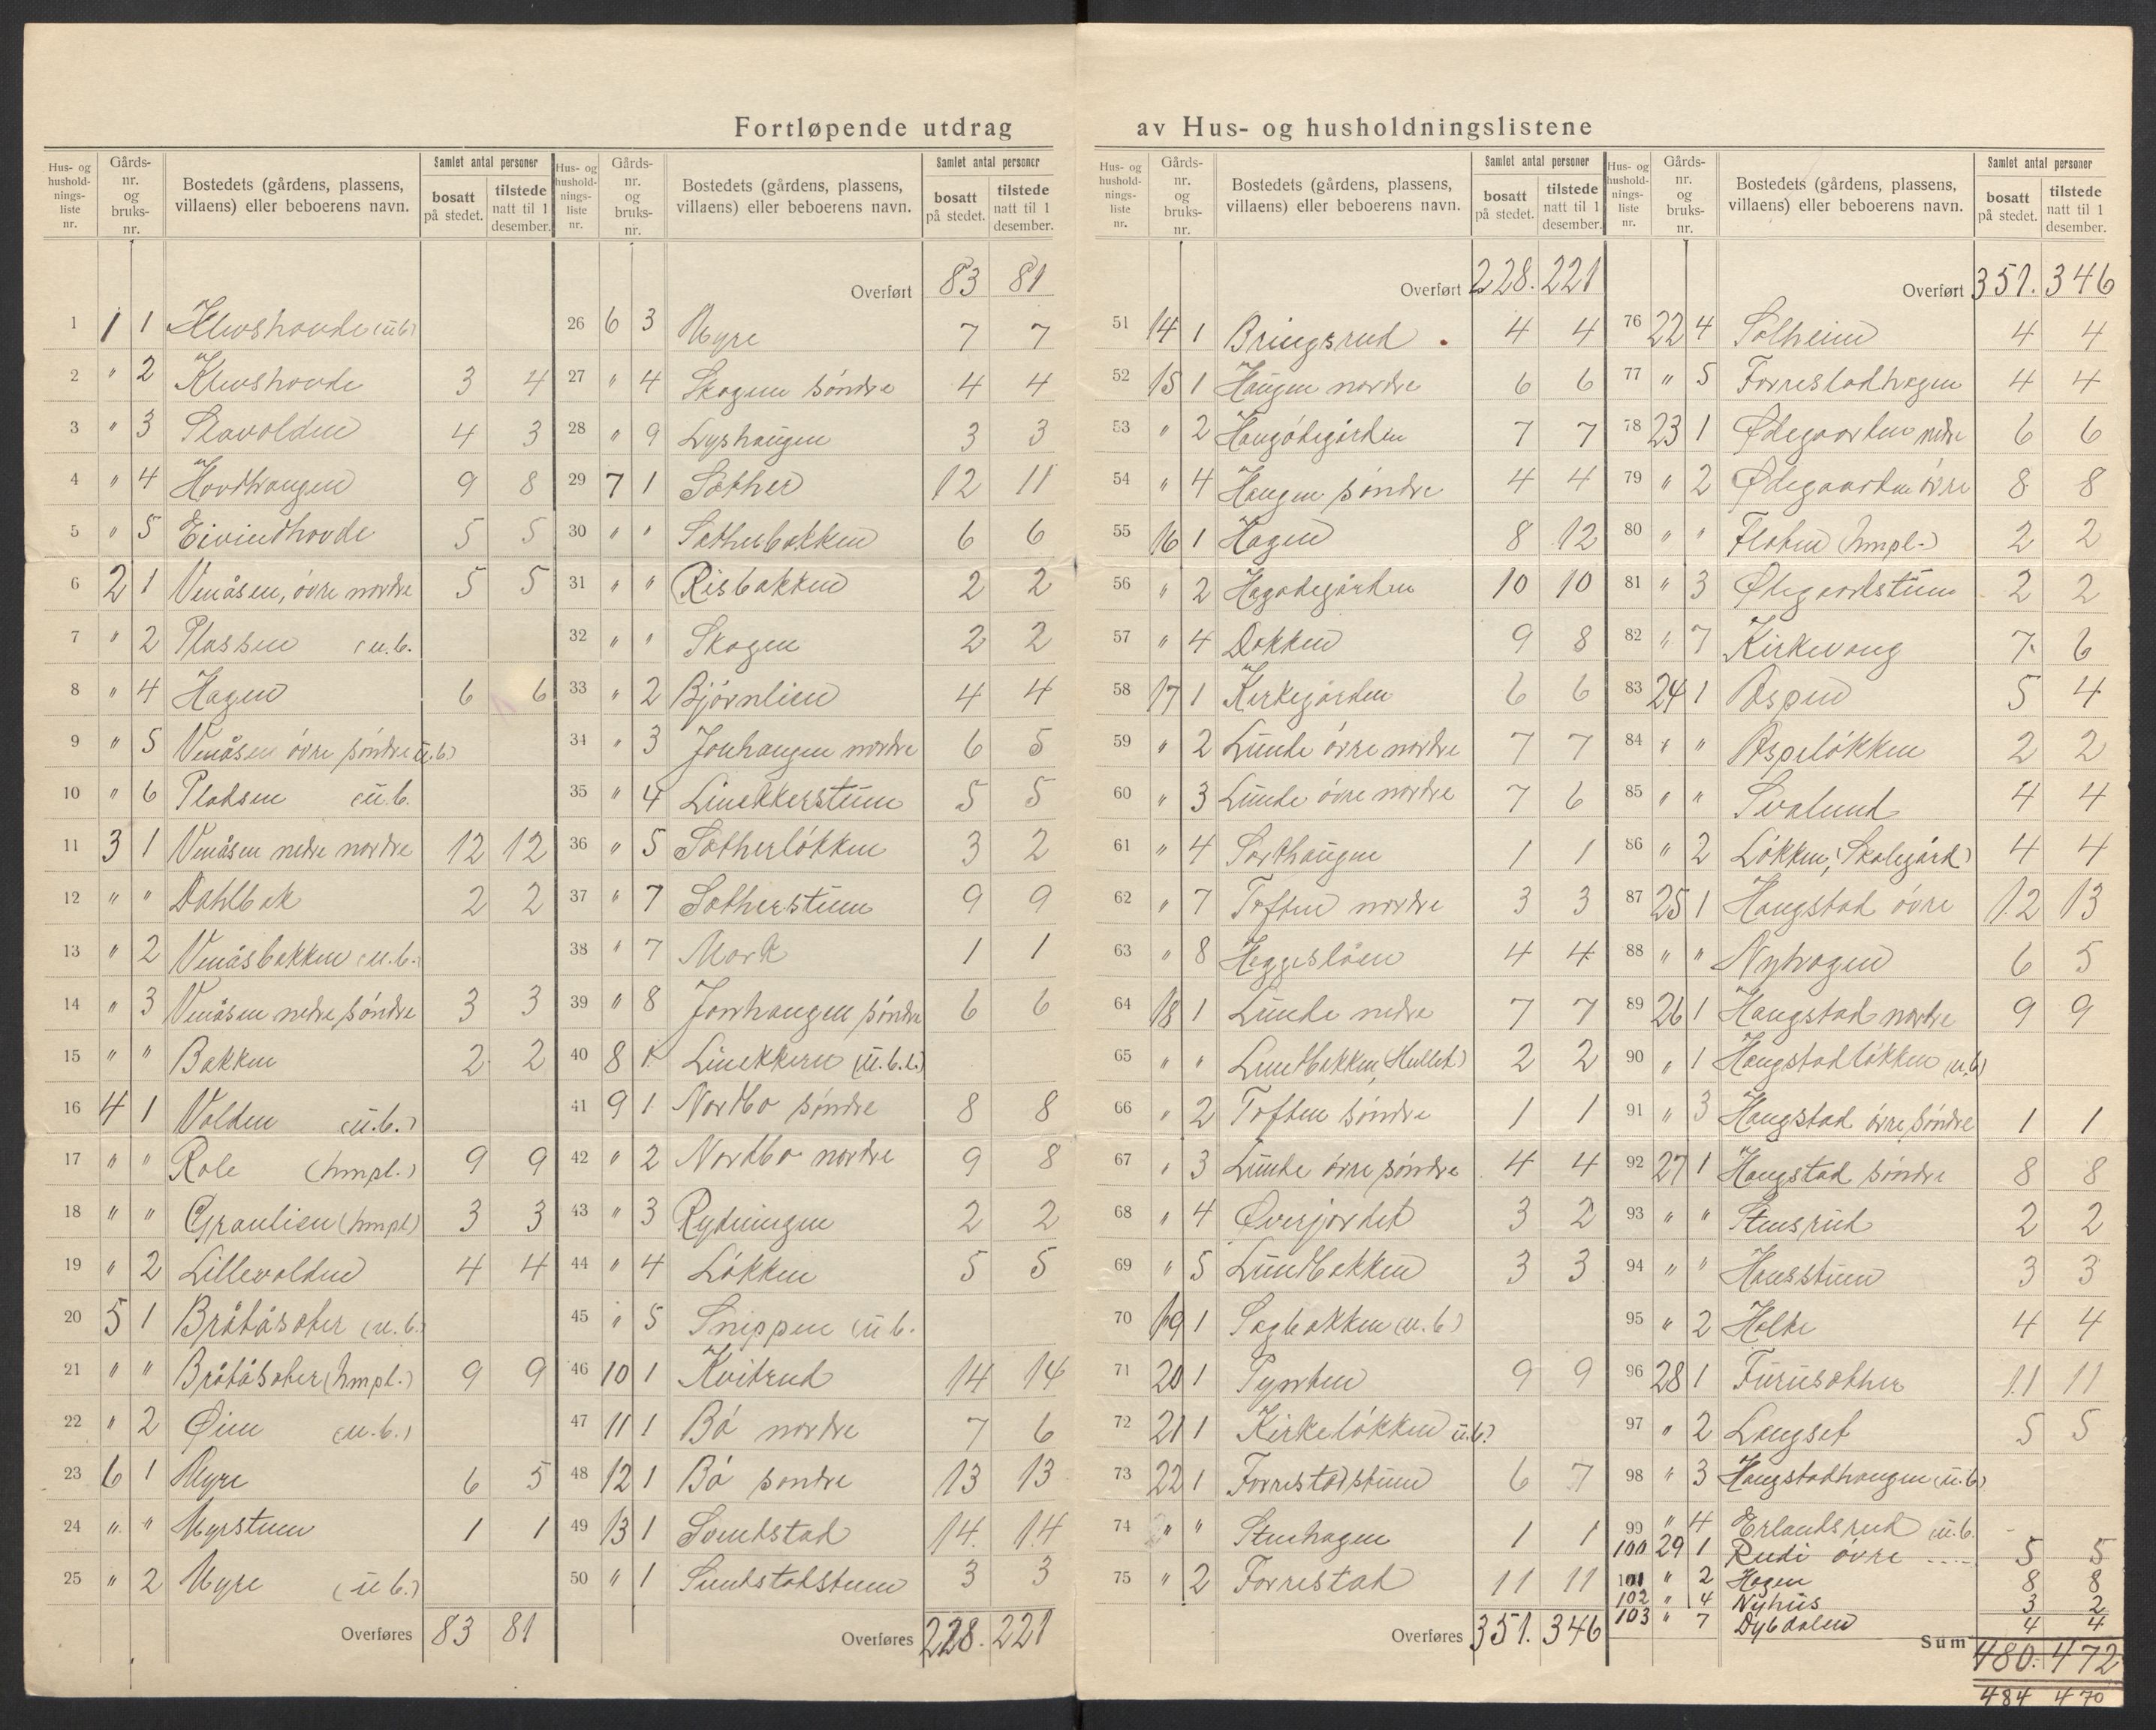 Fortløpende utdrag av Hus- og husholdningslistene
Hus- og husholdnings-liste nr. | Gårds-nr. og bruks-nr. | Bostedets (gårdens, plassens, villaens) eller beboerens navn. | Samlet antal personer bosatt på stedet. | tilstede natt til 1 desember.
1 1 1 Klevshovde (u.b)
2 " 2 Klevshovde 3 4
3 " 3 4 3
4 " 4 Hovdhaugen 9 8
5 " 5 Eivindhovde 5 5
6 2 1 Venåsen, øvre nordre 5 5
7 " 2 Plassen (u.b.
8 " 4 Hagen 6 6
9 " 5 Venåsen øvre søndre u.b)
10 " 6 Pladsen (u.b.
11 3 1 Venåsen nedre nordre 12 12
12 " " Dahlbak 2 2
13 " 2 Venåsbakken (u.b.)
14 " 3 Venåsen nedre søndre 3 3
15 " " Bakken 2 2
16 4 1 Volden (u.b.)
17 " " Role (hmpl.) 9 9
18 " " Granlien (hmpl) 3 3
19 " 2 Lillevolden 4 4
20 5 1 Bråtåsæter (u.b.)
21 " " Bråtåsæter (hmpl.) 9 9
22 " 2 Øien (u.b.)
23 6 1 Myre 6 5
24 " " Myrstuen 1 1
25 " 2 Myre (u b.)
Overføres 83 81
Hus- og husholdnings-liste nr. | Gårds-nr. og bruks-nr. | Bostedets (gårdens, plassens, villaens) eller beboerens navn. | Samlet antal personer bosatt på stedet. | tilstede natt til 1 desember.
Overført 83 81
26 6 3 Myre 7 7
27 " 4 Skogen søndre 4 4
28 " 9 Lyshaugen 3 3
29 7 1 Sæther 12 11
30 " " Sætherbakken 6 6
31 " " Risbakken 2 2
32 " " Skogen 2 2
33 " 2 Bjørnlien 4 4
34 " 3 Jonhaugen nordre 6 5
35 " 4 Linekkerstuen 5 5
36 " 5 Sætherløkken 3 2
37 " 7 Sætherstuen 9 9
38 " 7 Mork 1 1
39 " 8 Jonhaugen søndre 6 6
40 8 1 Linekkern (u.b.l.)
41 9 1 Nordbo søndre 8 8
42 " 2 Nordbo nordre 9 8
43 " 3 Rydningen 2 2
44 " 4 Løkken 5 5
45 " 5 Snippen (u b.
46 10 1 Kvitrud 14 14
47 11 1 Bø nordre 7 6
48 12 1 Bø søndre 13 13
49 13 1 Svendstad 14. 14
50 " 1 Svendstadstuen 3 3
Overføres 228. 221
Hus- og husholdnings-liste nr. | Gårds-nr. og bruks-nr. | Bostedets (gårdens, plassens, villaens) eller beboerens navn. | Samlet antal personer bosatt på stedet. | tilstede natt til 1 desember.
Overført 228. 221
51 14 1 Bringsrud 4 4
52 15 1 Haugen nordre 6 6
53 " 2 Haugødegården 7 7
54 " 4 Haugen søndre 4 4
55 16 1 Hagen 8 12
56 " 2 Hagødegården 10 10
57 " 4 Dokken 9 8
58 17 1 Kirkegården 6 6
59 " 2 Lunde øvre nordre 7 7
60 " 3 Lunde øvre nordre 7 6
61 " 4 Sorthaugen 1 1
62 " 7 Toften nordre 3 3
63 " 8 Heggesløen 4 4
64 18 1 Lunde nedre 7 7
65 " " Lundbakken (Hullet) 2 2
66 " 2 Toften søndre 1 1
67 " 3 Lunde øvre søndre 4 4
68 " 4 Øverjordet 3 2
69 " 5 Lundbakken 3 3
70 19 1 Sagbakken (u.b)
71 20 1 Pynten 9 9
72 21 1 Kirkeløkken u.b.
73 22 1 Forrestadstuen 6 7
74 " " Stenhagen 1 1
75 " 2 Forrestad 11 11
Overføres 351. 346
Hus- og husholdnings-liste nr. | Gårds-nr. og bruks-nr. | Bostedets (gårdens, plassens, villaens) eller beboerens navn. | Samlet antal personer bosatt på stedet. | tilstede natt til 1 desember.
Overført 351. 346
76 22 4 Solheim 4 4
77 " 5 Forrestadhagen 4 4
78 23 1 Ødegaarden nedre 6 6
79 " 2 Ødegaarden øvre 8 8
80 " " Floten (hmpl.) 2 2
81 " 3 Ødegaardstuen 2 2
82 " 7 Kirkevang 7. 6
83 24 1 Aspen 5 4
84 " " Aspeløkken 2 2
85 " " Svalund 4 4
86 " 2 Løkken, (Skolegård) 4 4
87 25 1 Haugstad øvre 12 13
88 " " Nyhagen 6 5
89 26 1 Haugstad nordre 9 9
90 " 1 Haugstadløkken (u.b)
91 " 3 Haugstad øvre søndre 1 1
92 27 1 Haugstad søndre 8 8
93 " " Stensrud 2 2
94 " " Hansstuen 3 3
95 " 2 Holte 4 4
96 28 1 Furusæther 11 11
97 " 2 Langset 5 5
98 " 3 Haugstadhaugen (u.b)
99 " 4 Erlandsrud u.b.
100 29 1 Rudi øvre 5 5
101 " 2 Hagen 8 8
102 " 4 Nyhus 3 2
103 " 7 Dybdalen 4 4
Sum 480. 472
484 470